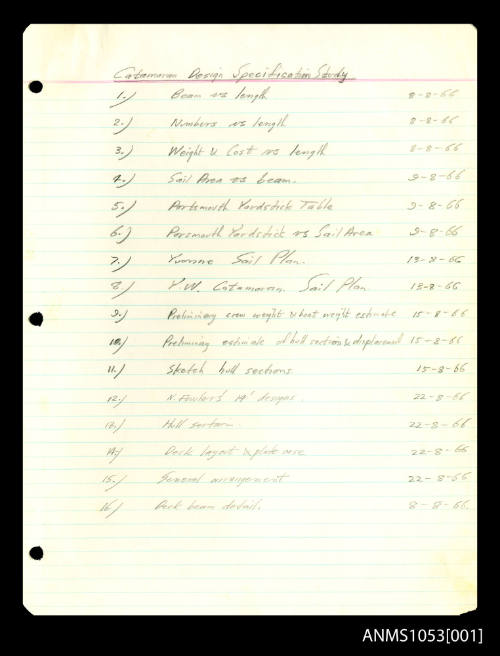 Catamaran Design Specification Study
1.) Beam vs length 8-8-66
2.) Numbers vs length 8-8-66
3.) Weight & Cost vs length 8-8-66
4.) Sail Area vs beam. 9-8-66
5.) Portsmouth Yardstick Table 9-8-66
6.) Porsmouth Yardstick vs Sail Area 9-8-66
7.) Yvonne Sail Plan. 13-8-66
8.) Y.W. Catamaran Sail Plan 13-8-66
9.) Preliminary crew weight & boat weight estimate 15-8-66
10.) Preliminary estimate of hull section & displacement 15-8-66
11.) Sketch hull sections 15-8-66
12.) N. Fowler's 14' designs. 22-8-66
13.) Hull 22-8-66
14.) Deck layout & plate case 22-8-66
15.) General arrangement 22-8-66
16.) Deck beam detail. 8-8-66.
ANMS1053[001]